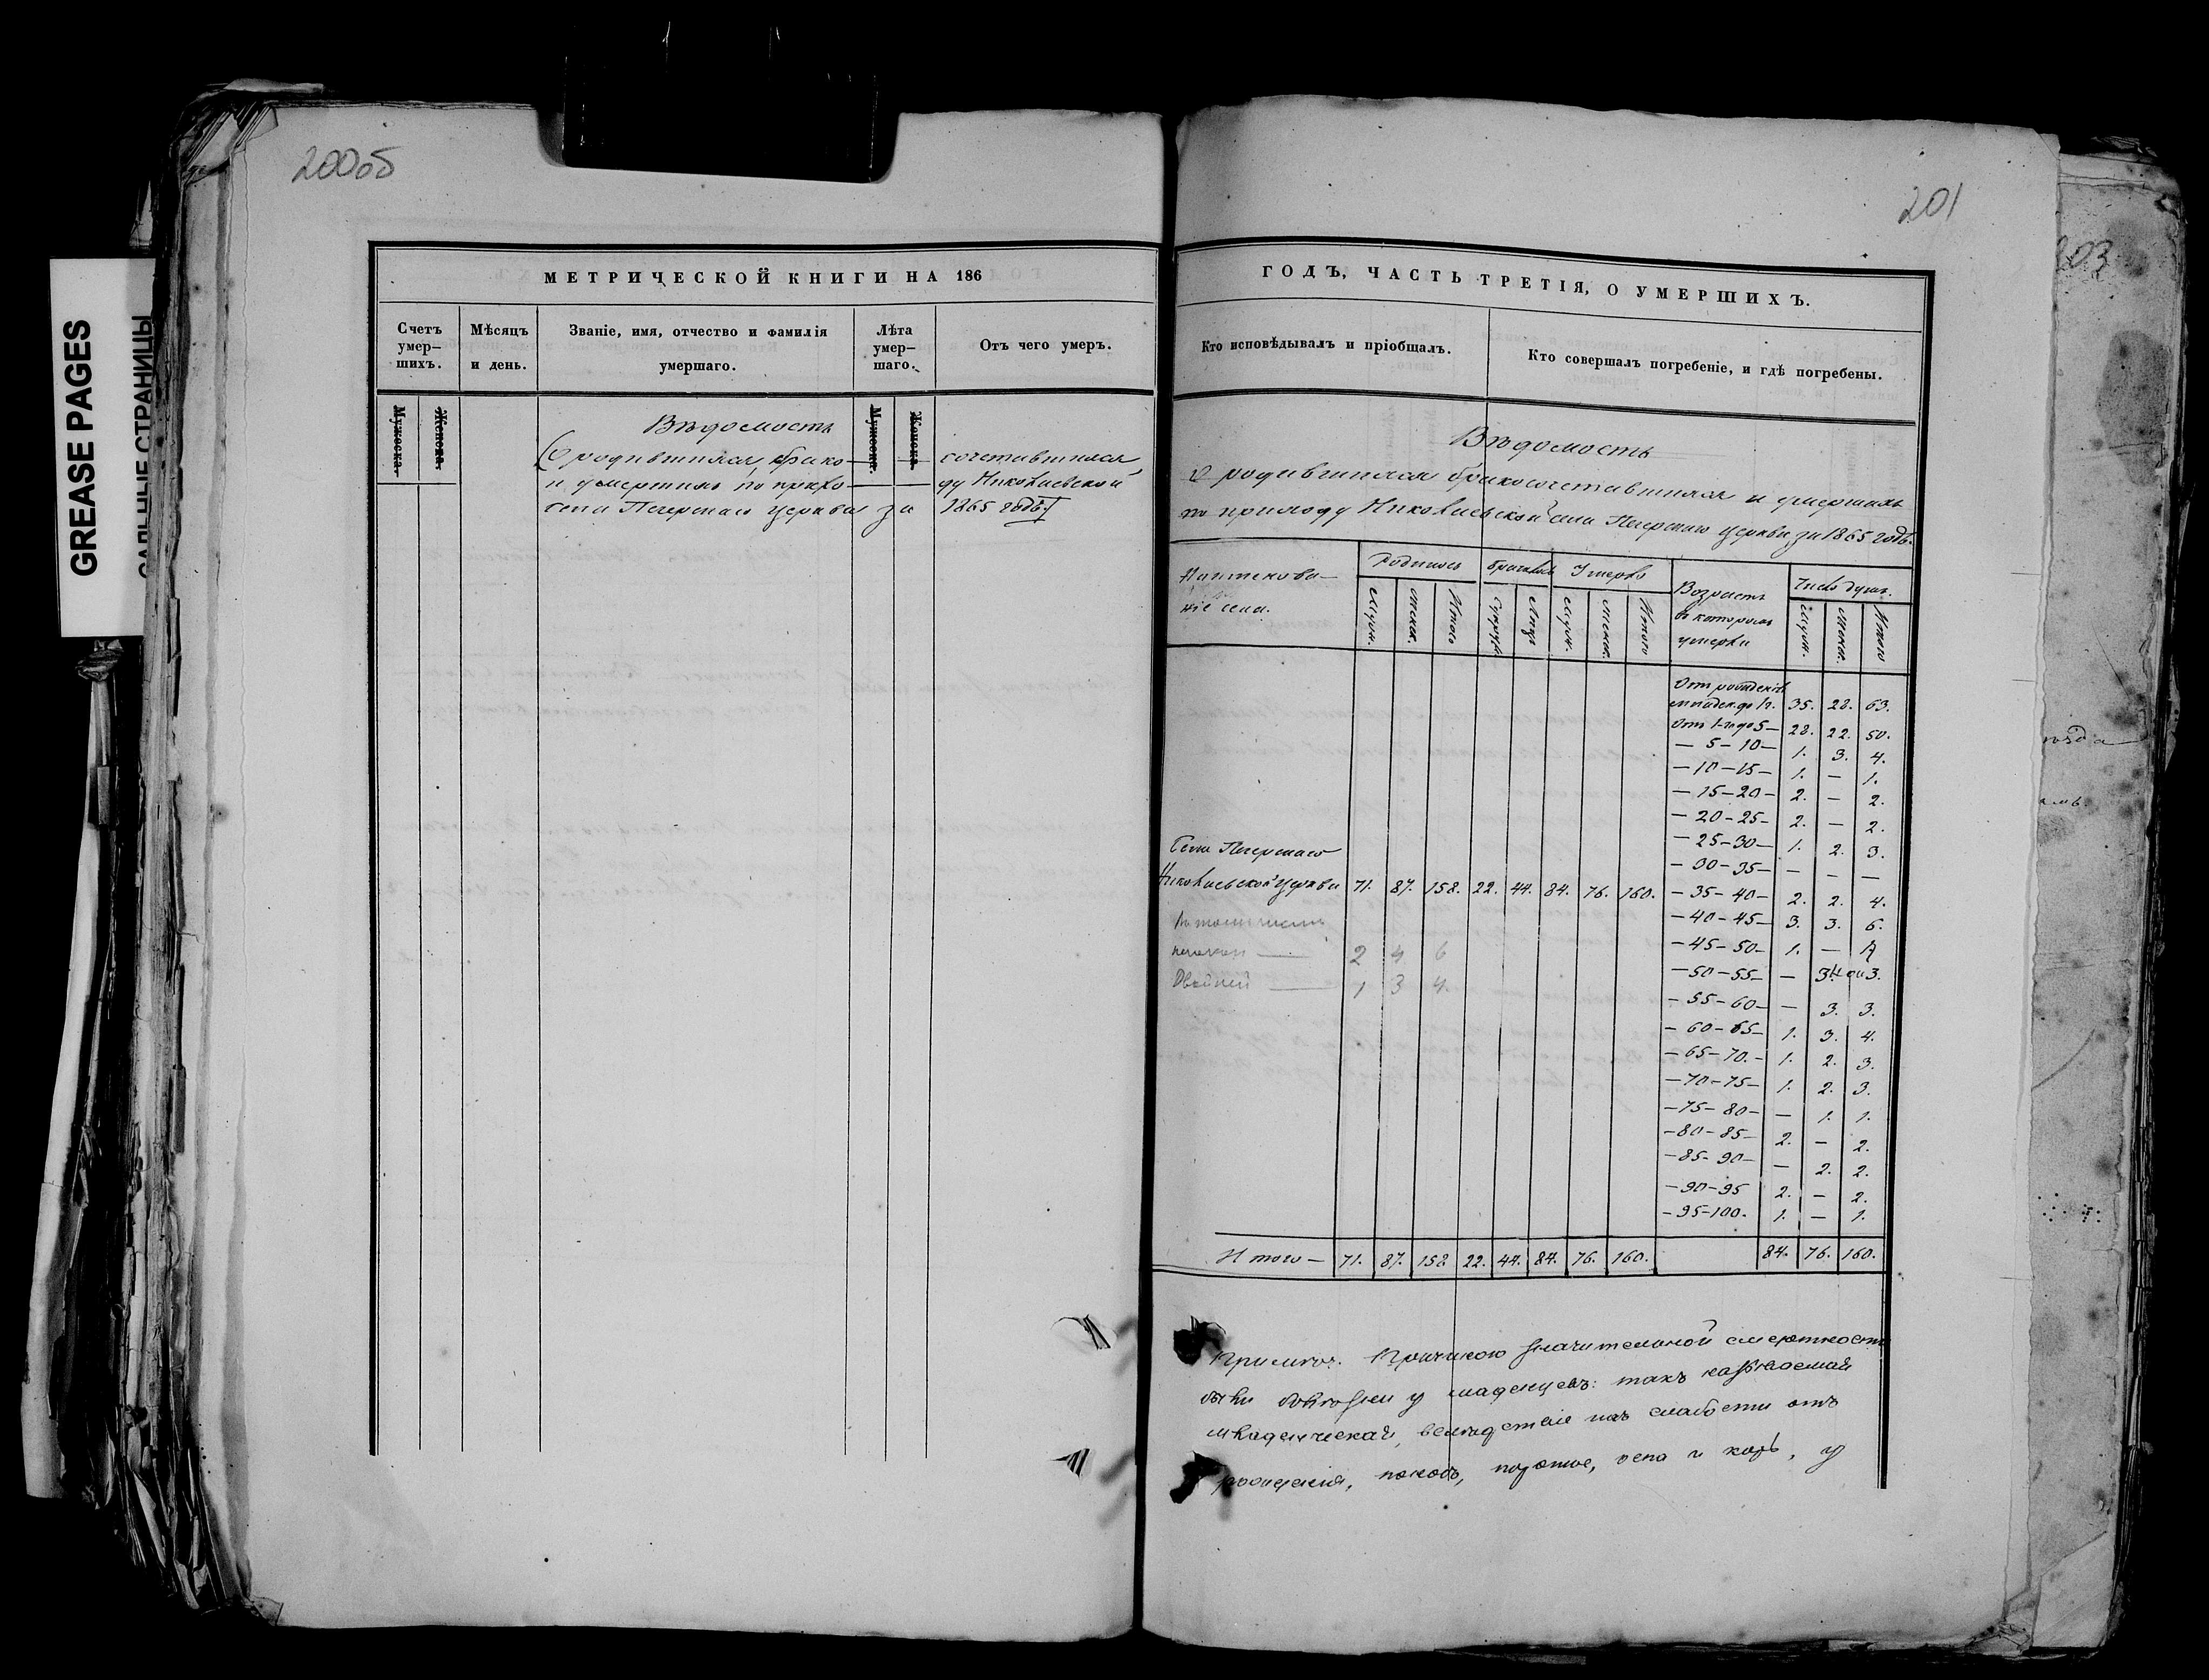 200об
МЕТРИЧЕСКОЙ КНИГИ НА 186
Счетъ умер— шихъ.
Мѣсяцъ и день.
Званіе, имя, отчество и фамилія умершаго.
Лѣта умер— шаго.
Отъ чего умеръ.
Мужеска.
Женска.
Мужеска.
Женска.
Вѣдомость
О родившихся, брако— сочетавшихся
и умершихъ по прихо— ду Николаевской
села Печерскаго церкви за 1865 годъ.
201
ГОДЪ, ЧАСТЬ ТРЕТІЯ, О УМЕРШИХЪ.
Кто исповѣдывалъ и пріобщалъ.
Кто совершалъ погребеніе, и гдѣ погребены.
Вѣдомость
О родившихся бракосочетавшихся и умершихъ
по приходу Николаевской села Печерскаго церкви за 1865 годъ.
Наименова— ніе села.
Родилось
Браковъ
Умерло
Возрастъ въ которомъ умерли
Число душъ.
Муж. женск. Итого Супруж. Лицъ Муж. женск. Итого Муж. женск. Итого
Отъ рожденія
младен. до 1 г. 35. 28. 63.
Отъ 1-го до 5— 28. 22. 50.
— 5 — 10— 1. 3. 4.
— 10 — 15— 1. — 1.
— 15 — 20— 2. — 2.
— 20 — 25— 2. — 2.
— 25 — 30— 1. 2. 3.
— 30 — 35— — — —
Села Печерскаго
Николаевской церкви 71. 87. 158. 22. 44. 84. 76. 160. — 35 — 40— 2. 2. 4.
— 40 — 45— 3. 3. 6.
— 45 — 50— 1. — 1
— 50 — 55— — 3. 3.
— 55 — 60— — 3. 3.
— 60 — 65— 1. 3. 4.
— 65 — 70.— 1. 2. 3.
— 70 — 75— 1. 2. 3.
— 75 — 80— — 1. 1.
— 80 — 85— 2. — 2.
— 85 — 90— — 2. 2.
— 90 — 95 2. — 2.
— 95 — 100. 1. — 1.
въ томъ числѣ
2 4 6
Двойней 1 3 4.
Итого — 71. 87. 158 22. 44. 84. 76. 160. 84. 76. 160.
Примѣч. Причиною значительной смертности
были болѣзни у младенцевъ: такъ называемая
младенческая, вслѣдствіе ихъ слабости отъ
рожденія, поносъ, оспа и корь, у
GREASE PAGES
САЛЬНЫЕ СТРАНИЦЫ
203